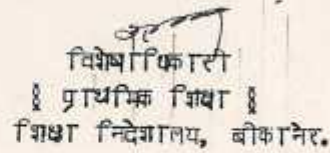 विशेषाधिकारी
§ प्राथमिक शिक्षा §
शिक्षा निदेशालय, बीकानेर.